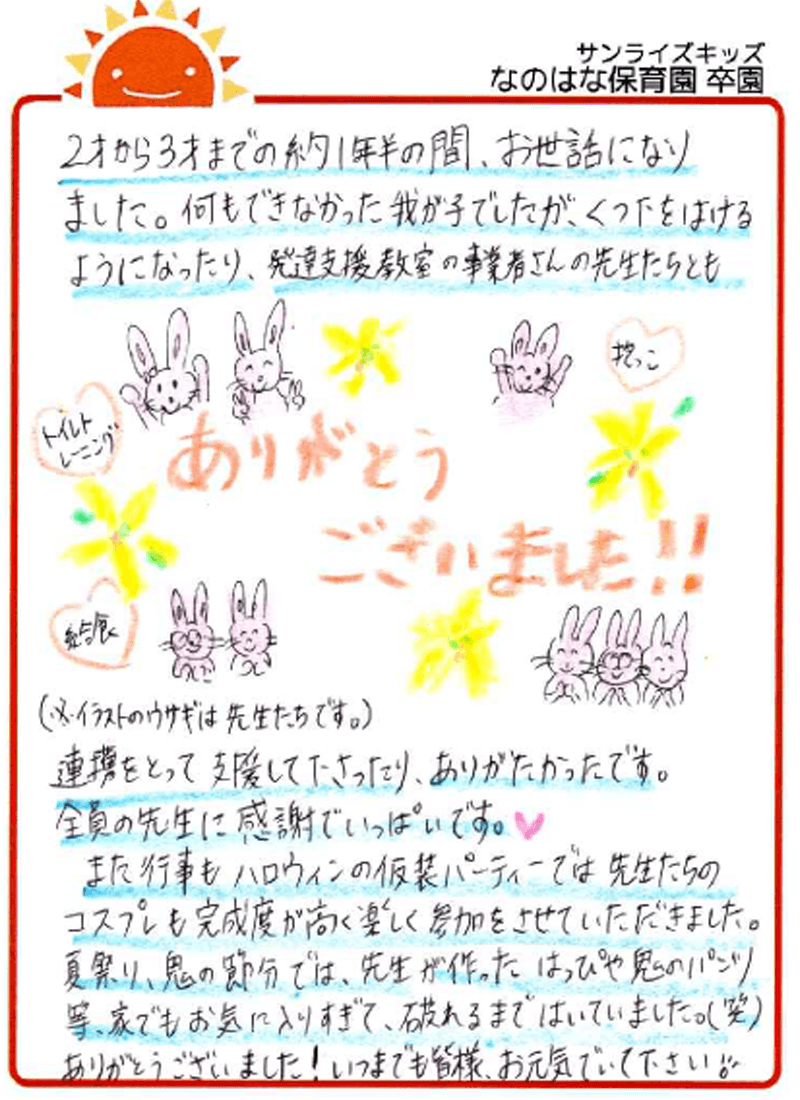 サンライズキッズ
なのはな保育園 卒園
2才から3才までの約1年半の間、お世話になり
ました。何もできなかった我が子でしたが、くつ下をはける
ようになったり、発達支援教室の事業者さんの先生たちとも
抱っこ
トイレト
レーニング
ありがとう
ございました!!
給食
(※イラストのウサギは先生たちです。)
連携をとって支援して下さったり、ありがたかったです。
全員の先生に感謝でいっぱいです。
また行事もハロウィンの仮装パーティーでは先生たちの
コスプレも完成度が高く楽しく参加をさせていただきました。
夏祭り、鬼の節分では、先生が作ったはっぴや鬼のパンツ
等、家でもお気に入りすぎて、破れるまではいていました。(笑)
ありがとうございました!いつまでも皆様、お元気でいて下さい